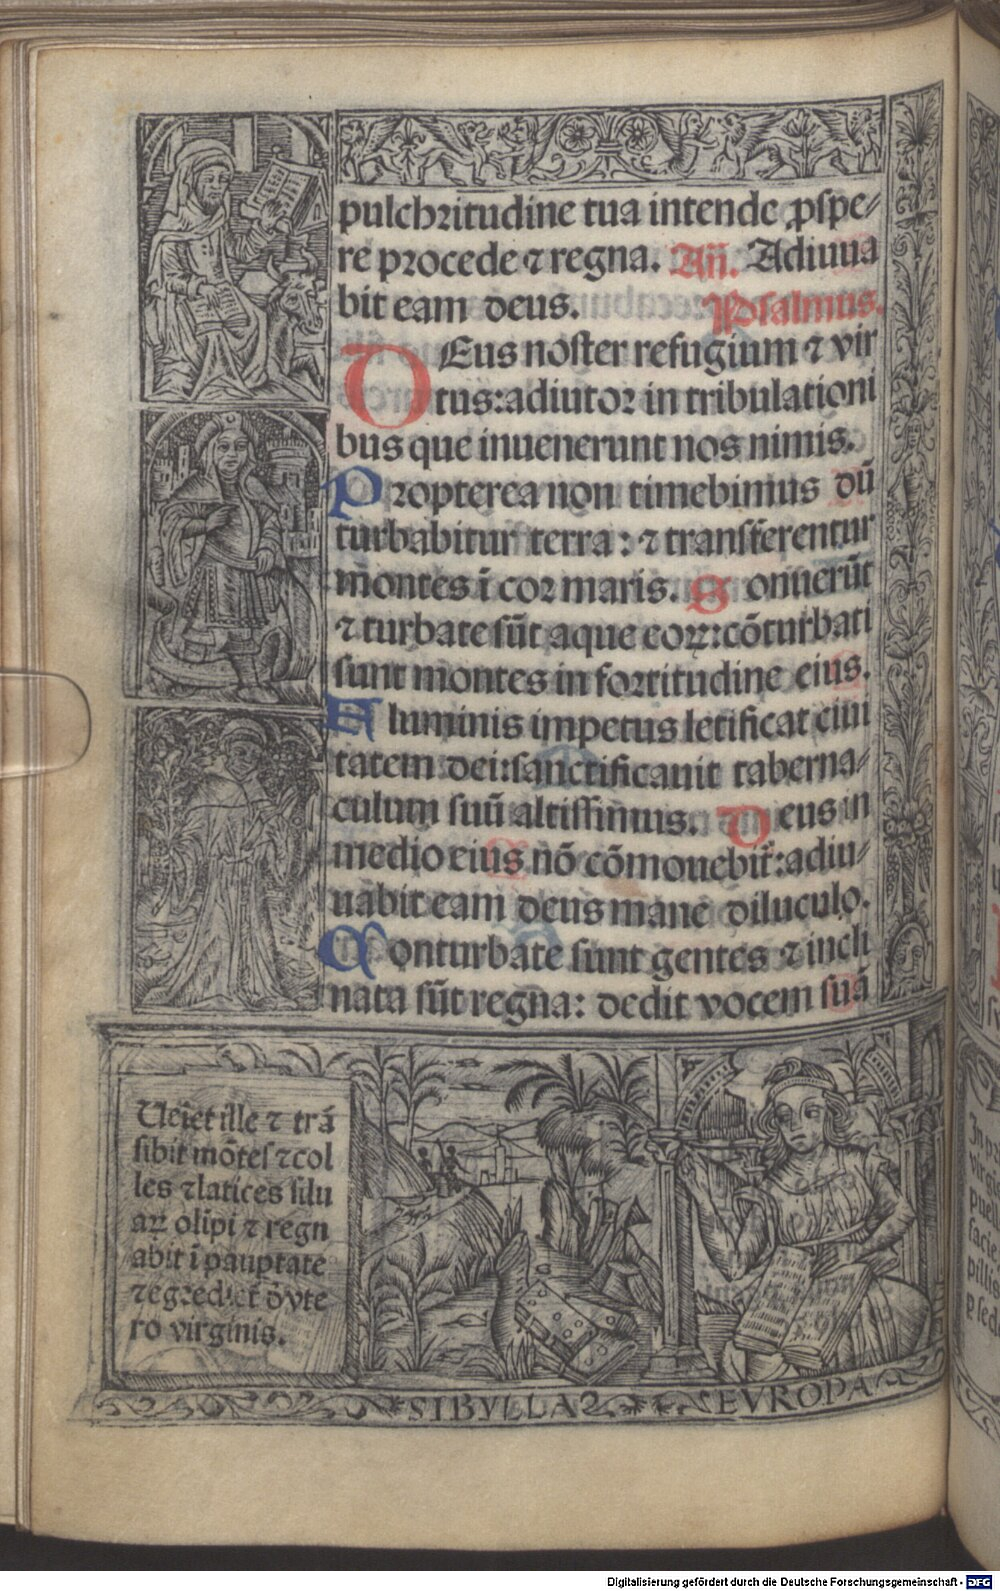 pulchritudine tua intende ꝓspe/
re procede ⁊ regna. Añ. Adiuua
bit eam deus. Psalmus.
DEus noster refugium ⁊ vir
tus: adiutor in tribulationi
bus que inuenerunt nos nimis.
Propterea non timebimus dū
turbabitur terra: ⁊ transferentur
montes ī cor maris. Sonuerūt
⁊ turbate sūt aque eoꝝ: cōturbati
sunt montes in fortitudine eius.
Fluminis impetus letificat ciui
tatem dei: sanctificauit taberna/
culum suū altissimus. Deus in
medio eius nō cōmouebit̄: adiu/
uabit eam deus mane diluculo.
Conturbate sunt gentes ⁊ incli
nata sūt regna: dedit vocem suā
Ueīet ille ⁊ trā
sibit mōtes ⁊ col
les ⁊ latices silu
aꝝ olīpi ⁊ regn
abit ī pauptate
⁊ egrediet̄ d̄ vte
ro virginis.
SIBVLLA EVROPA
Digitalisierung gefördert durch die Deutsche Forschungsgemeinschaft - DFG